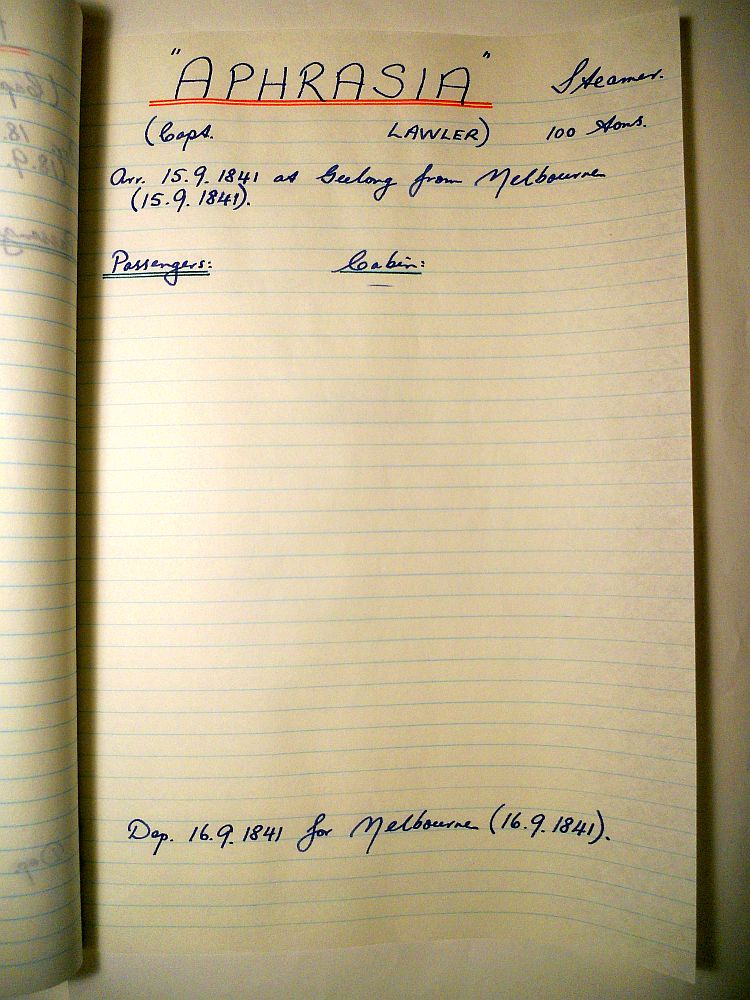 "APHRASIA" Steamer.
(Capt. LAWLER) 100 tons.
Arr. 15.9.1841 at Geelong from Melbourne
(15.9.1841).
Passengers: Cabin:
Dep. 16.9.1841 for Melbourne (16.9.1841).